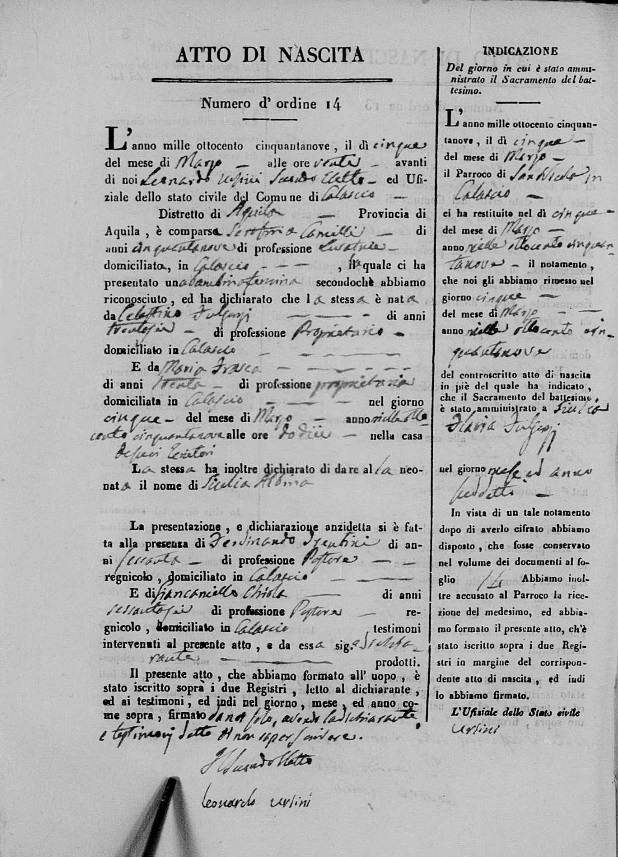 ATTO DI NASCITA
Numero d' ordine 14
L'anno mille ottocento cinquantanove, il dì cinque
del mese di Marzo alle ore venti avanti
di noi Leonardo Ursini Sindaco Eletto ed Ufi-
ziale dello stato civile del Comune di Calascio
Distretto di Aquila Provincia di
Aquila, è comparsa Serafina Camilli di
anni cinquantanove di professione Levatrice
domiciliata, in Calascio, la quale ci ha
presentato una bambina femina secondochè abbiamo
riconosciuto, ed ha dichiarato che la stessa è nata
da Celestino Fulgenzi di anni
trentasei di professione Proprietario
domiciliato in Calascio
E da Maria Frasca
di anni trenta di professione proprietaria
domiciliata in Calascio nel giorno
cinque del mese di Marzo anno mille otto
cento cinquantanove alle ore dodici nella casa
de' suoi Genitori
La stessa ha inoltre dichiarato di dare alla neo-
nata il nome di Giulia Albina
La presentazione, e dichiarazione anzidetta si è fat-
ta alla presenza di Ferdinando Trentini di an-
ni sessanta di professione Pastore
regnicolo, domiciliato in Calascio
E di Giancamillo di anni
sessantasei di professione Pastore re-
gnicolo, domiciliato in Calascio testimoni
intervenuti al presente atto, e da essa sig.a dichia-
rante prodotti.
Il presente atto, che abbiamo formato all' uopo, è
stato iscritto sopra i due Registri, letto al dichiarante,
ed ai testimoni, ed indi nel giorno, mese, ed anno co-
me sopra, firmato da noi solo, avendo la dichiarante
e testimonj detto di non saper scrivere.
Il Sindaco Eletto
Leonardo Ursini
INDICAZIONE
Del giorno in cui è stato ammi-
nistrato il Sacramento del bat-
tesimo.
L'anno mille ottocento cinquan-
tanove, il dì cinque
del mese di Marzo
il Parroco di San Nicola in
Calascio
ci ha restituito nel dì cinque
del mese di Marzo
anno mille ottocento cinquan-
tanove il notamento,
che noi gli abbiamo rimesso nel
giorno cinque
del mese di Marzo
anno mille ottocento cin-
quantanove
del controscritto atto di nascita
in piè del quale ha indicato,
che il Sacramento del battesimo
è stato amministrato a Giulia
Fulgenzi
nel giorno mese ed anno
suddetti
In vista di un tale notamento
dopo di averlo cifrato abbiamo
disposto, che fosse conservato
nel volume dei documenti al fo-
glio 14 Abbiamo inol-
tre accusato al Parroco la rice-
zione del medesimo, ed abbia-
mo formato il presente atto, ch'è
stato iscritto sopra i due Regi-
stri in margine del corrispon-
dente atto di nascita, ed indi
lo abbiamo firmato.
L'Ufiziale dello Stato civile
Ursini